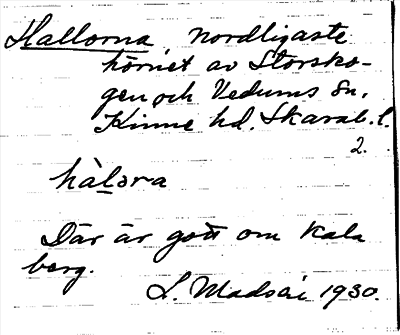 Hallorna nordligaste
hörnet av Storsko-
gen och Vedums sn,
Kinne hd. Skarab. l.
2.
hàlora
Där är gott om kala
berg.
L. 1930.